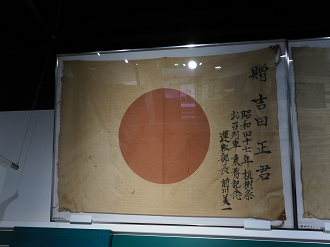 贈 吉田正君
昭和四十七年植樹祭
お召列車乗務記念
運転部長 前川義一